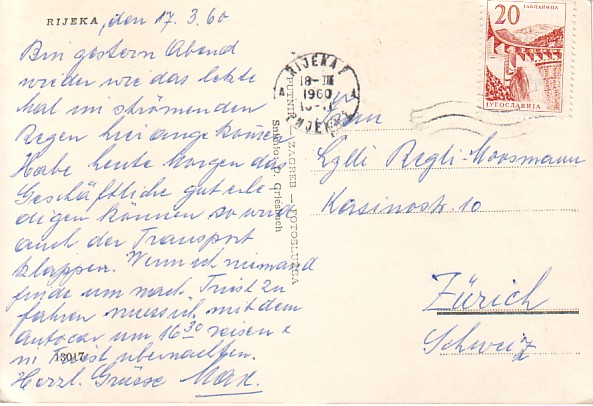 RIJEKA, den 17.3.60
Bin gestern Abend
wieder wie das letzte
Mal im strömenden
Regen hier angekommen
Habe heute Morgen das
Geschäftliche gut erle-
digen können so wird
auch der Transport
klappen. Wenn ich niemand
finde um nach Triest zu
fahren muss ich mit dem
Autocar um 16 30 reisen &
in Triest übernachten.
Herzl. Grüsse Max.
13017
"PUTNIK" — ZAGREB — FOTOSLUŽBA
Snimio: Griesbach
RIJEKA 1
18-III
1960
RIJEKA 1
20
ЈУГОСЛАВИЈА
JUGOSLAVIJA
Frau
Lylli Regli-Moosmann
Kasinostr. 10
Zürich
Schweiz